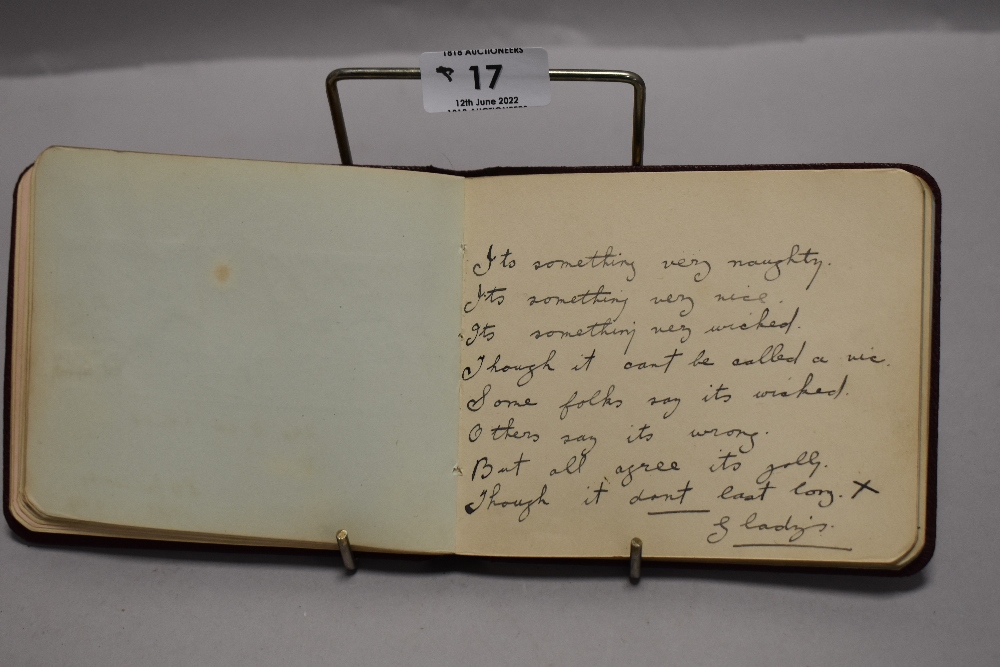 1818 AUCTIONEERS
17
12th June 2022
1818 AUCTIONEERS
Its something very naughty.
Its something very nice.
Its something very wicked.
Though it cant be called a vic.
Some folks say its wicked.
Others say its wrong.
But all agree its jolly.
Though it dont last long. X
Gladys.